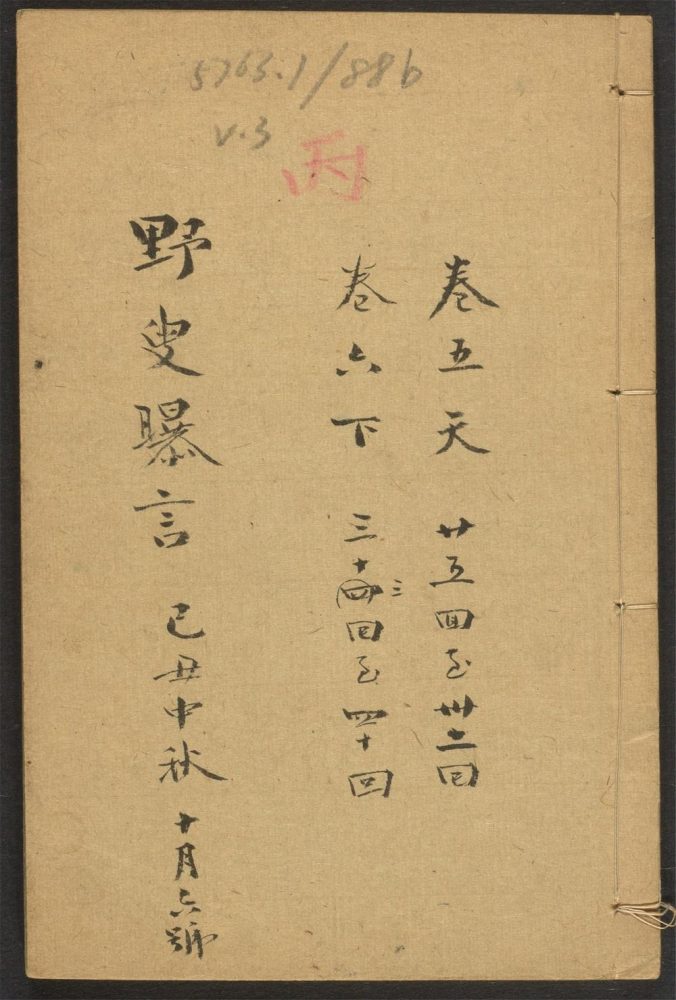 5763.1/88b
v.3
丙
卷五天 廿五回至卅二回
卷六下 三十四三回至四十回
野叟曝言 己丑中秋 十月六號